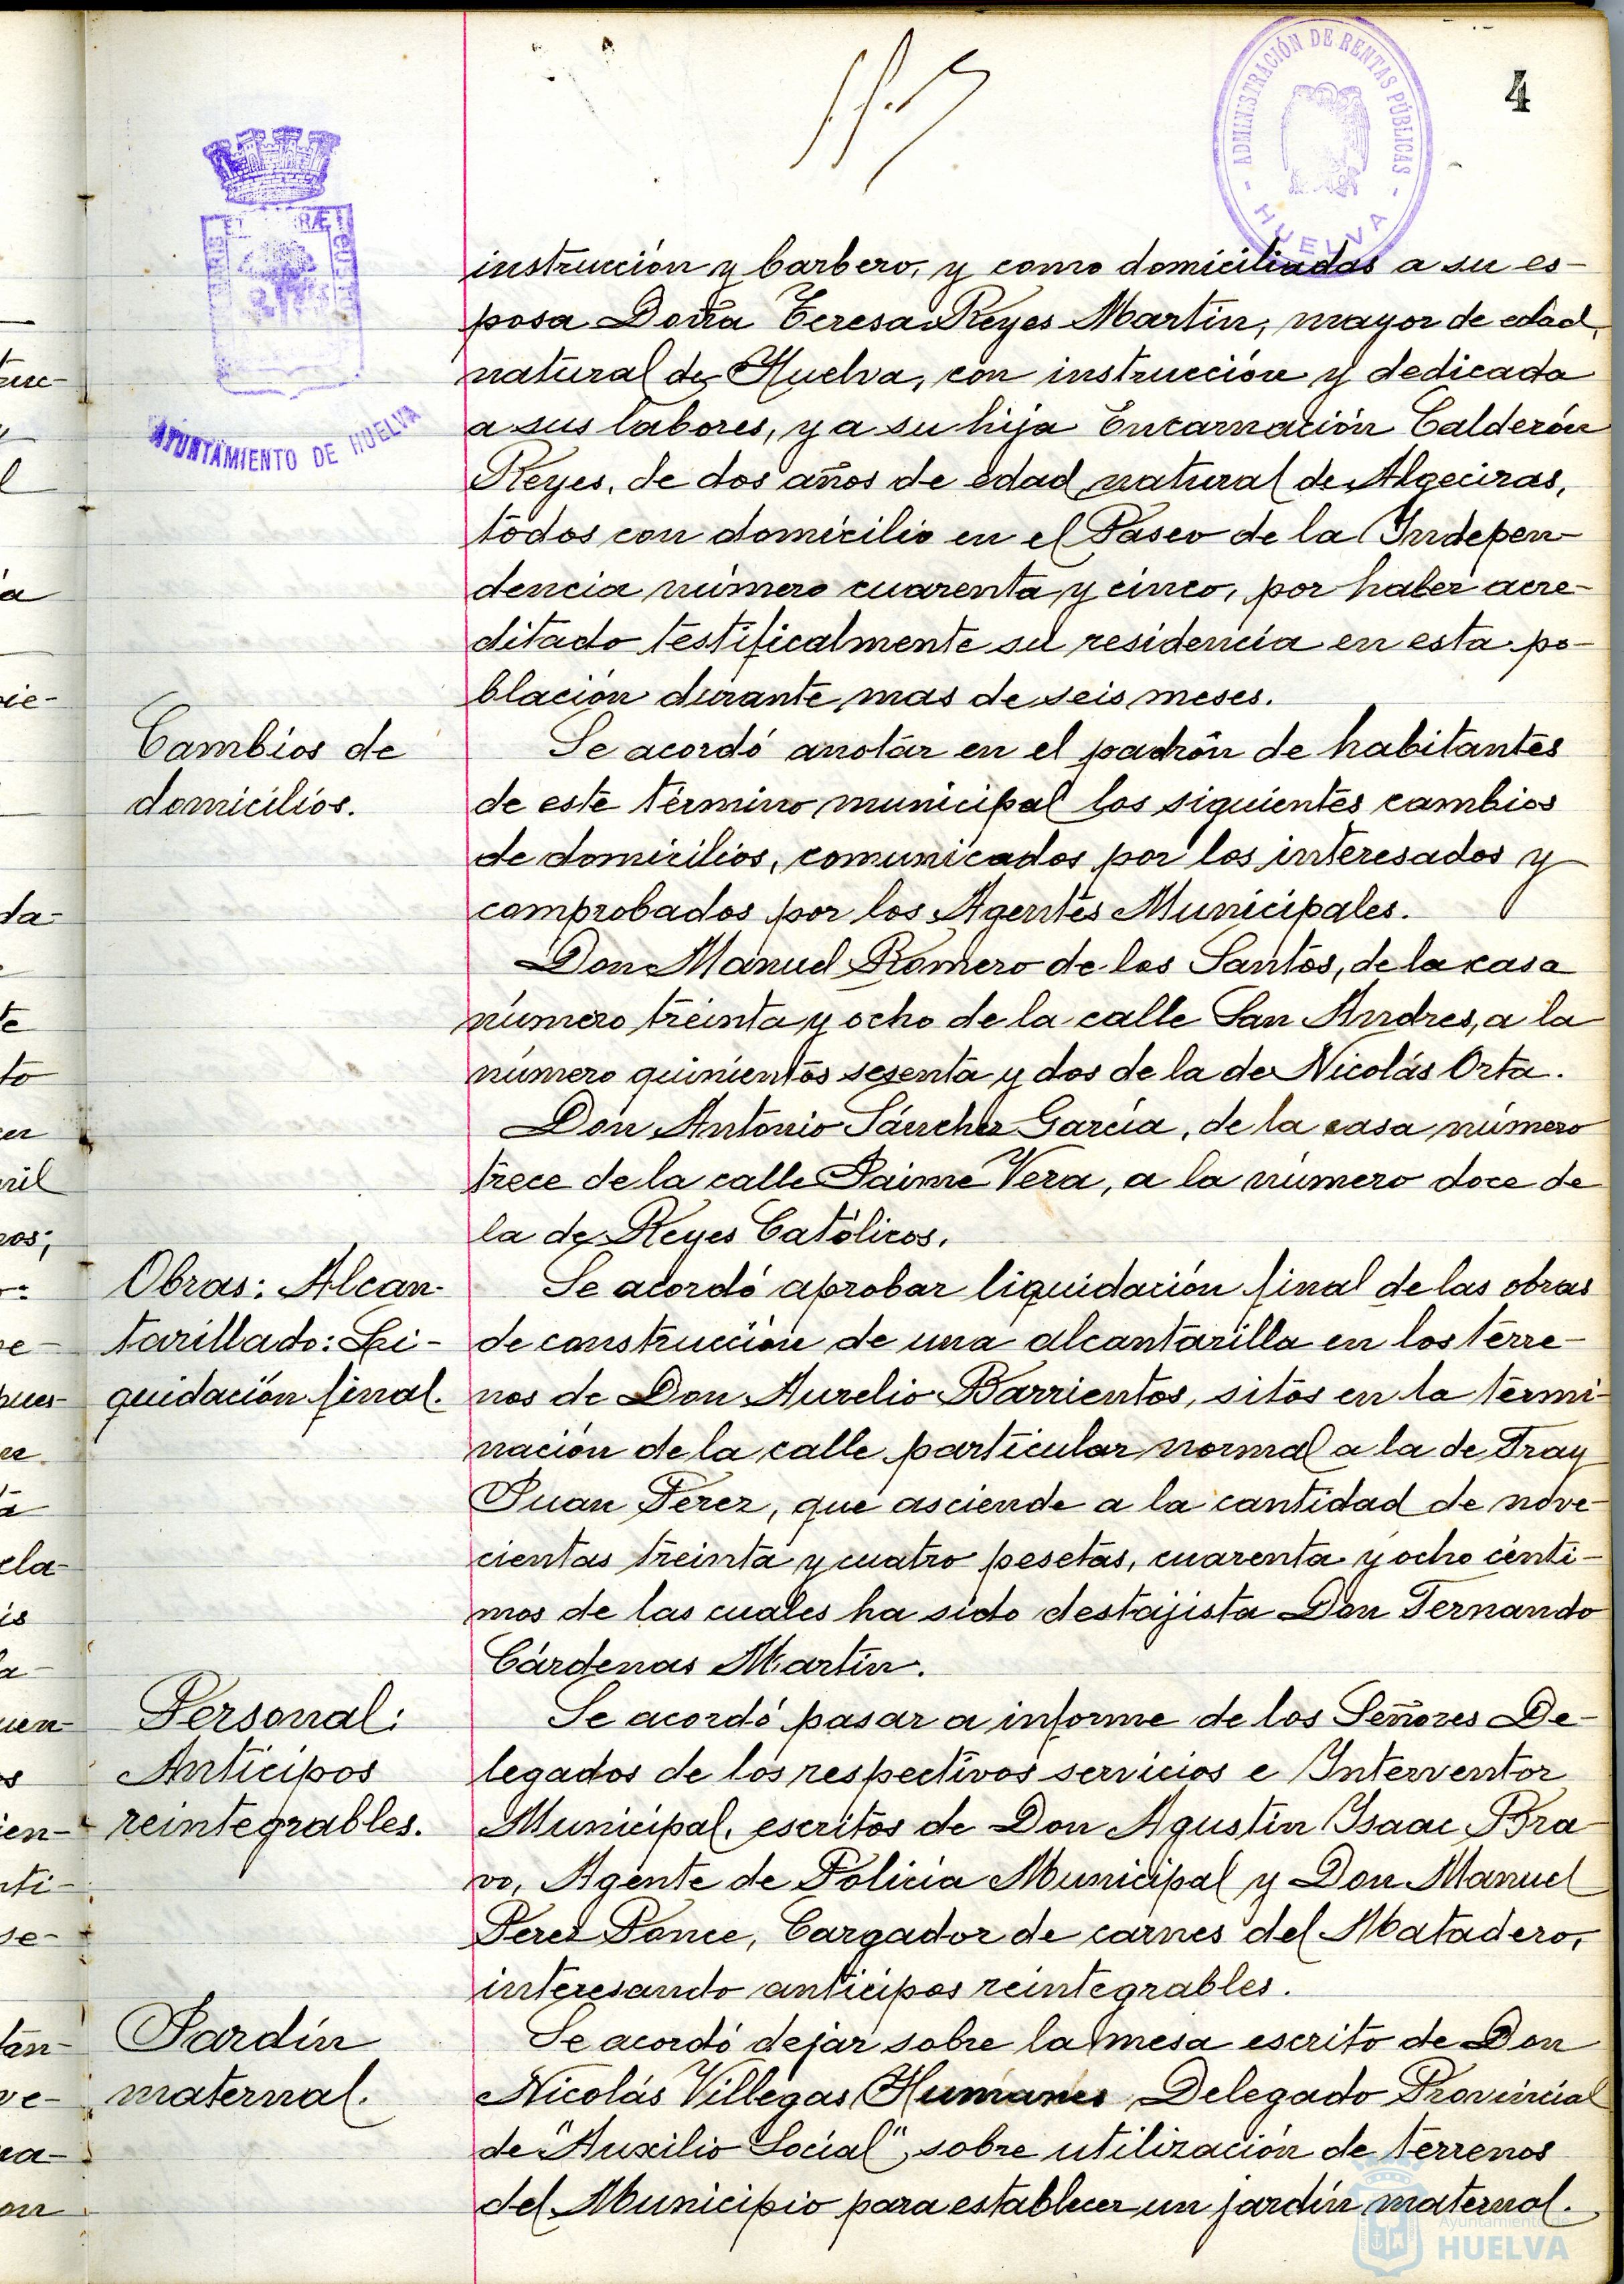 4
ADMINISTRACIÓN DE RENTAS PÚBLICAS
HUELVA
AYUNTAMIENTO DE HUELVA
instrucción y barbero, y como domiciliadas a su es-
posa Doña Teresa Reyes Martín, mayor de edad,
natural de Huelva, con instrucción y dedicada
a sus labores, y a su hija Encarnación Calderón
Reyes, de dos años de edad natural de Algeciras,
todos con domicilio en el Paseo de la Indepen-
dencia número cuarenta y cinco, por haber acre-
ditado testificalmente su residencia en esta po-
blación durante mas de seis meses.
Cambios de
domicilios.
Se acordó anotar en el padrón de habitantes
de este término municipal los siguientes cambios
de domicilios, comunicados por los interesados y
comprobados por los Agentes Municipales.
Don Manuel Romero de los Santos, de la casa
número treinta y ocho de la calle San Andres, a la
número quinientos sesenta y dos de la de Nicolás Orta.
Don Antonio Sánchez García, de la casa número
trece de la calle Jaime Vera, a la número doce de
la de Reyes Católicos.
Obras: Alcan-
tarillado: Li-
quidación final.
Se acordó aprobar liquidación final de las obras
de construcción de una alcantarilla en los terre-
nos de Don Aurelio Barrientos, sitos en la termi-
nación de la calle particular normal a la de Fray
Juan Pérez, que asciende a la cantidad de nove-
cientas treinta y cuatro pesetas, cuarenta y ocho cénti-
mos de las cuales ha sido destajista Don Fernando
Cárdenas Martín.
Personal:
Anticipos
reintegrables.
Se acordó pasar a informe de los Señores De-
legados de los respectivos servicios e Interventor
Municipal, escritos de Don Agustín Isaac Bra-
vo, Agente de Policía Municipal y Don Manuel
Perez Ponce, Cargador de carnes del Matadero,
interesando anticipos reintegrables.
Jardín
maternal.
Se acordó dejar sobre la mesa escrito de Don
Nicolás Villegas Humanes Delegado Provincial
de "Auxilio Social", sobre utilización de terrenos
del Municipio para establecer un jardín maternal.
Ayuntamiento de
HUELVA